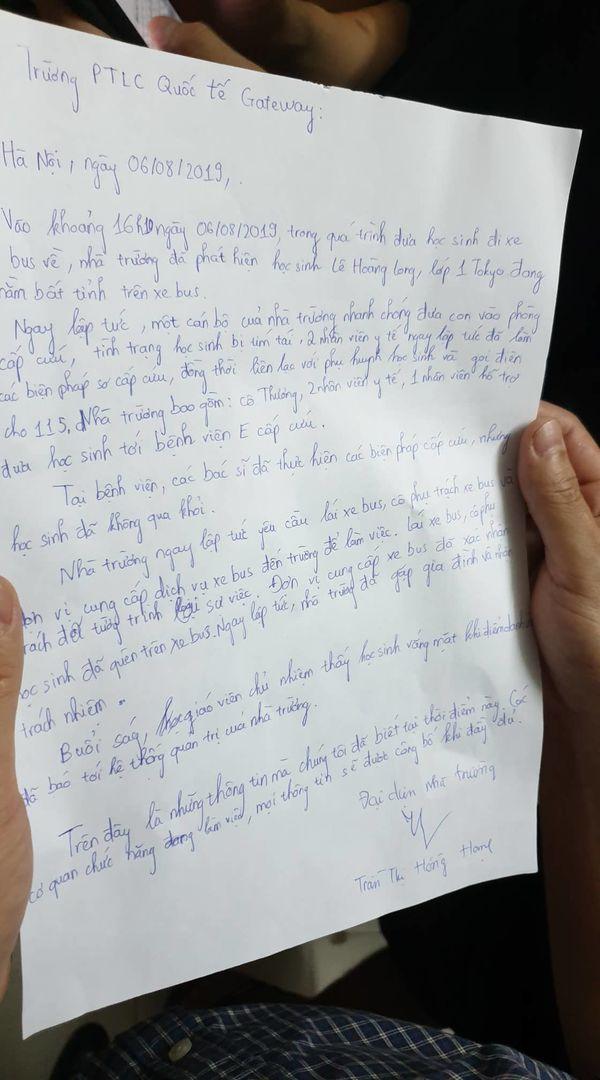 Trường PTLC Quốc tế Gateway:
Hà Nội, ngày 06/08/2019,.
Vào khoảng 16h10 ngày 06/08/2019, trong quá trình đưa học sinh đi xe
bus về, nhà trường đã phát hiện học sinh Lê Hoàng Long, lớp 1 Tokyo đang
nằm bất tỉnh trên xe bus.
Ngay lập tức, một cán bộ của nhà trường nhanh chóng đưa con vào phòng
cấp cứu, tình trạng học sinh bị tím tái, 2 nhân viên y tế ngay lập tức đã làm
các biện pháp sơ cấp cứu, đồng thời liên lạc với phụ huynh học sinh và gọi điện
cho 115. Nhà trường bao gồm: cô Thương, 2 nhân viên y tế, 1 nhân viên hỗ trợ
đưa học sinh tới bệnh viện E cấp cứu.
Tại bệnh viện, các bác sĩ đã thực hiện các biện pháp cấp cứu, nhưng
học sinh đã không qua khỏi.
Nhà trường ngay lập tức yêu cầu lái xe bus, cô phụ trách xe bus và
đơn vị cung cấp dịch vụ xe bus đến trường để làm việc. Lái xe bus, cô phụ
trách để tường trình lại sự việc. Đơn vị cung cấp xe bus đã xác nhận
học sinh đã quên trên xe bus. Ngay lập tức, nhà trường đã gặp gia đình và nhận
trách nhiệm.
Buổi ság, giáo viên chủ nhiệm thấy học sinh vắng mặt khi điểm danh
đã báo tới hệ thống quản trị của nhà trường.
Trên đây là những thông tin mà chúng tôi đã biết tại thời điểm này. Các
cơ quan chức năng đang làm việc, mọi thông tin sẽ được công bố khi đầy đủ.
Đại diện nhà trường
Trần Thị Hồng Hạnh